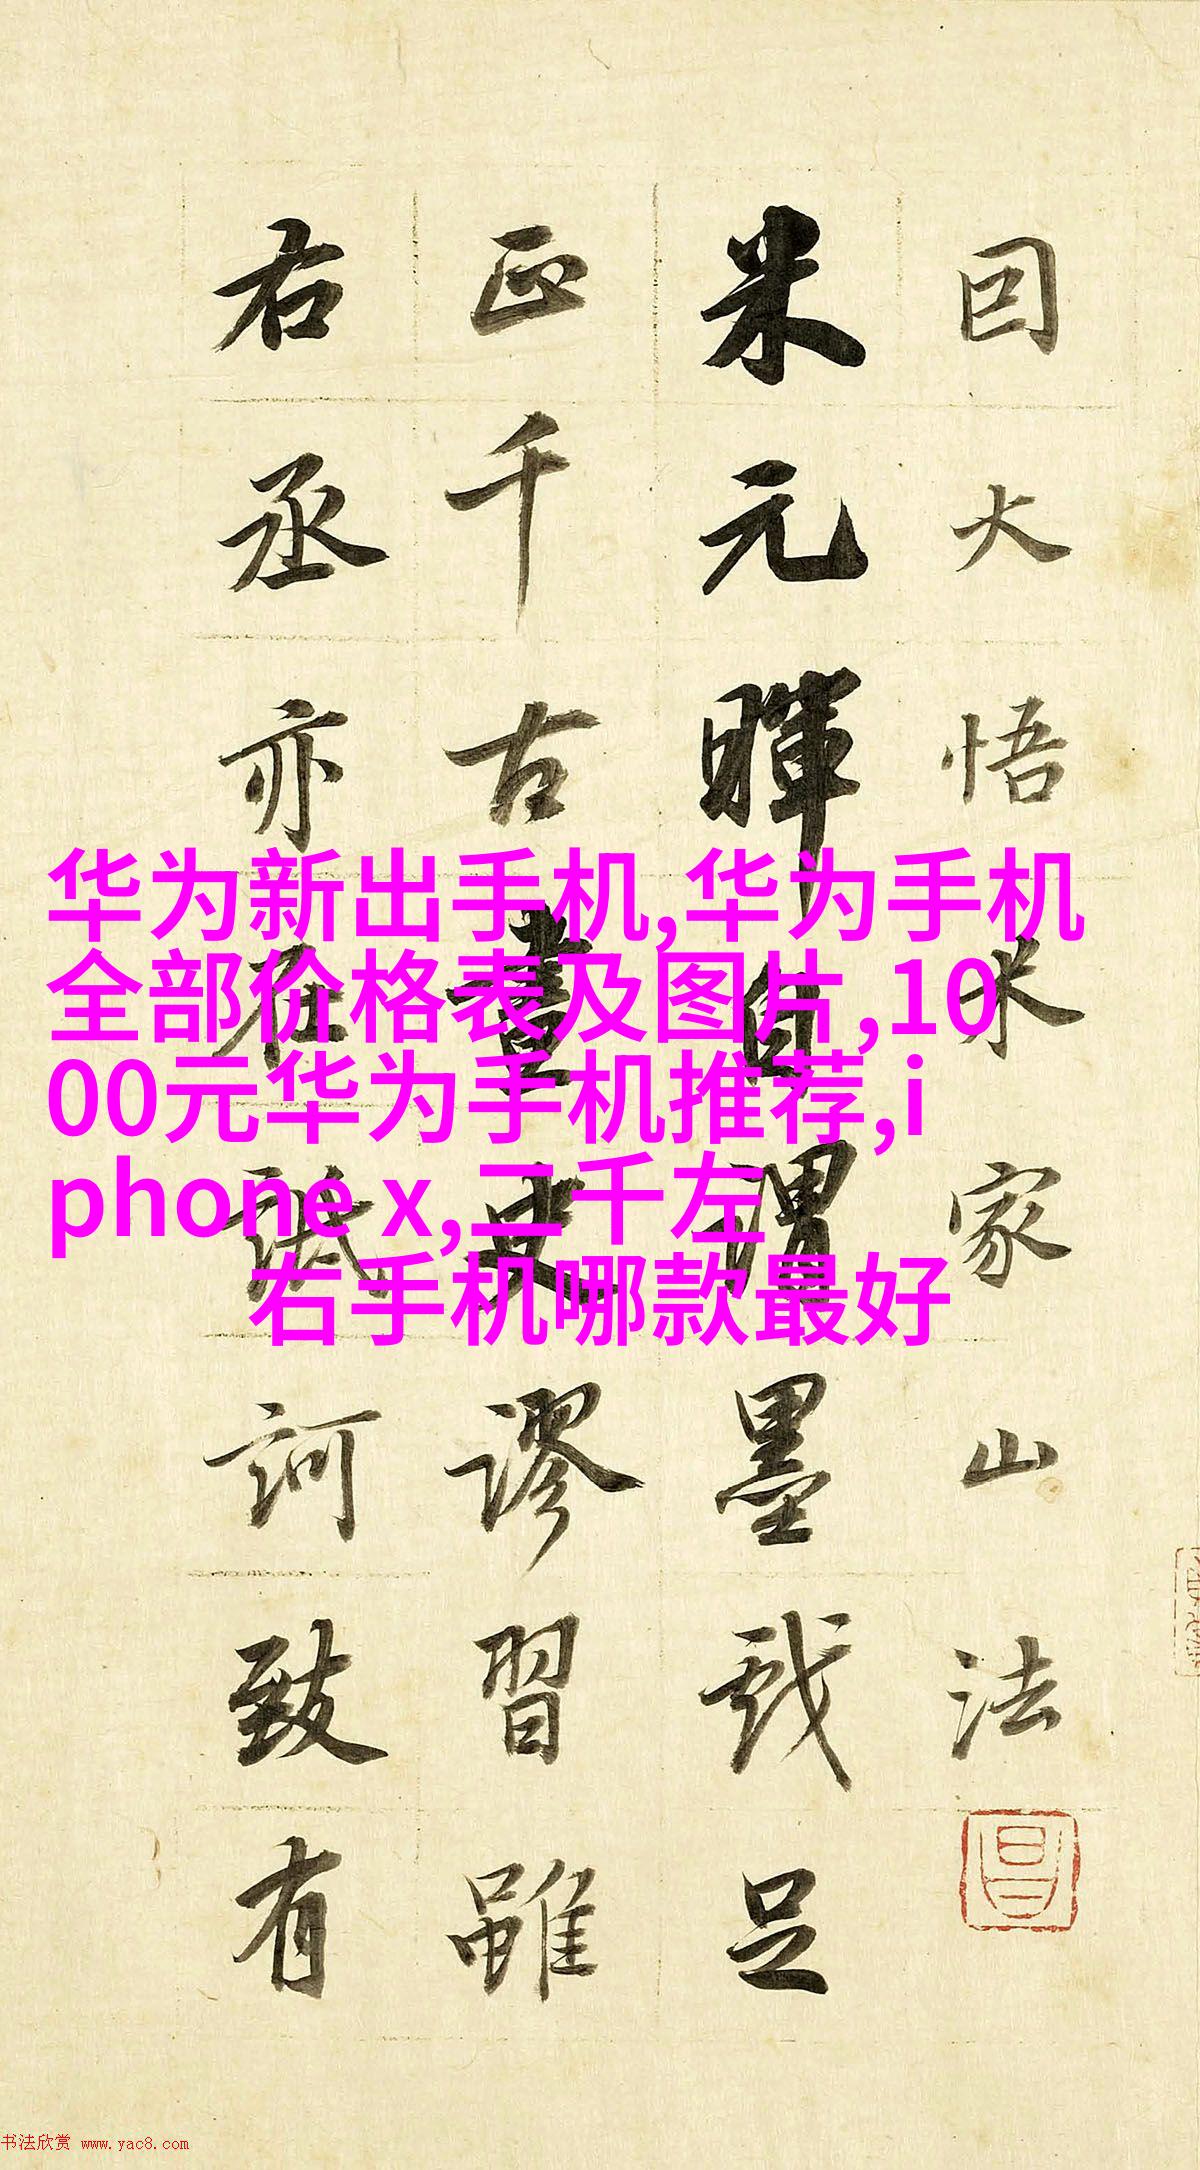 因大悟米家山法
米元暉自謂墨戲足
正千古畫史謬習雖
右丞亦在詆訶致有
华为新出手机,华为手机
全部价格表及图片,10
00元华为手机推荐,i
phone x,二千左
右手机哪款最好
书法欣赏 www.yac8.com